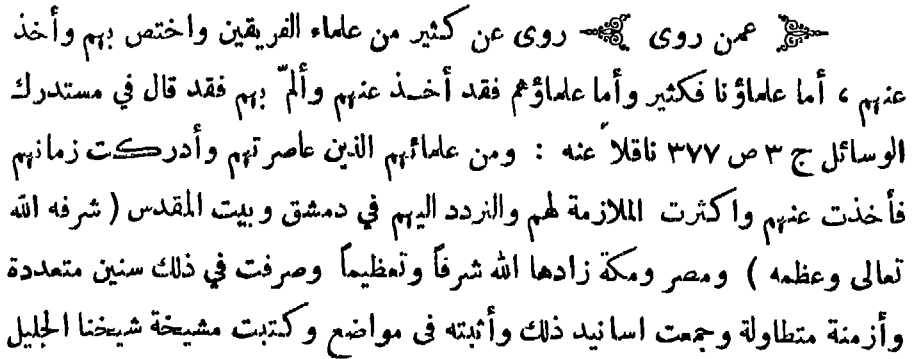 عمن روى روى عن كثير من علماء الفريقين واختص بهم وأخذ
عنهم ، أما علماؤنا فكثير وأما علماؤهم فقد أخذ عنهم وألمّ بهم فقد قال في مستدرك
الوسائل ج ٣ ص ٣٧٧ ناقلاً عنه : ومن علمائهم الذين عاصرتهم وأدركت زمانهم
فأخذت عنهم واكثرت الملازمة لهم والتردد اليهم في دمشق وبيت المقدس ( شرفه الله
تعالى وعظمه ) ومصر ومكة زادها الله شرفاً وتعظيماً وصرفت في ذلك سنين متعددة
وأزمنة متطاولة وجمعت اسانيد ذلك وأثبته في مواضع وكتبت مشيخة شيخنا الجليل